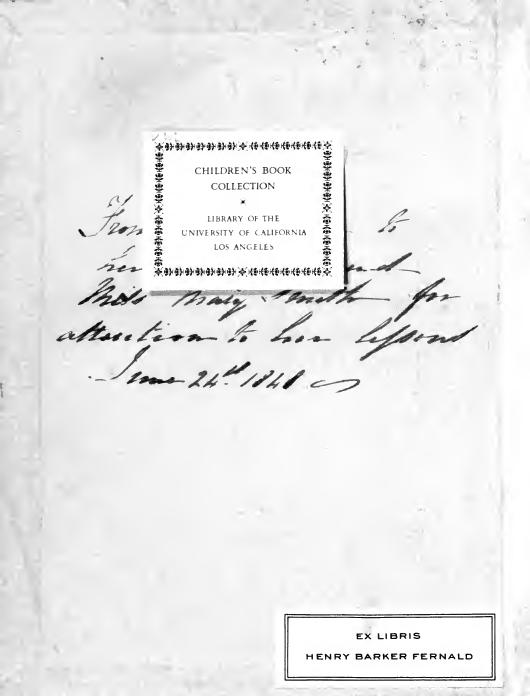 CHILDREN'S BOOK
COLLECTION
LIBRARY OF THE
UNIVERSITY OF CALIFORNIA
LOS ANGELES
From to
her
Miss Mary Smith for
attention to her lessons
June 24th 1840
EX LIBRIS
HENRY BARKER FERNALD